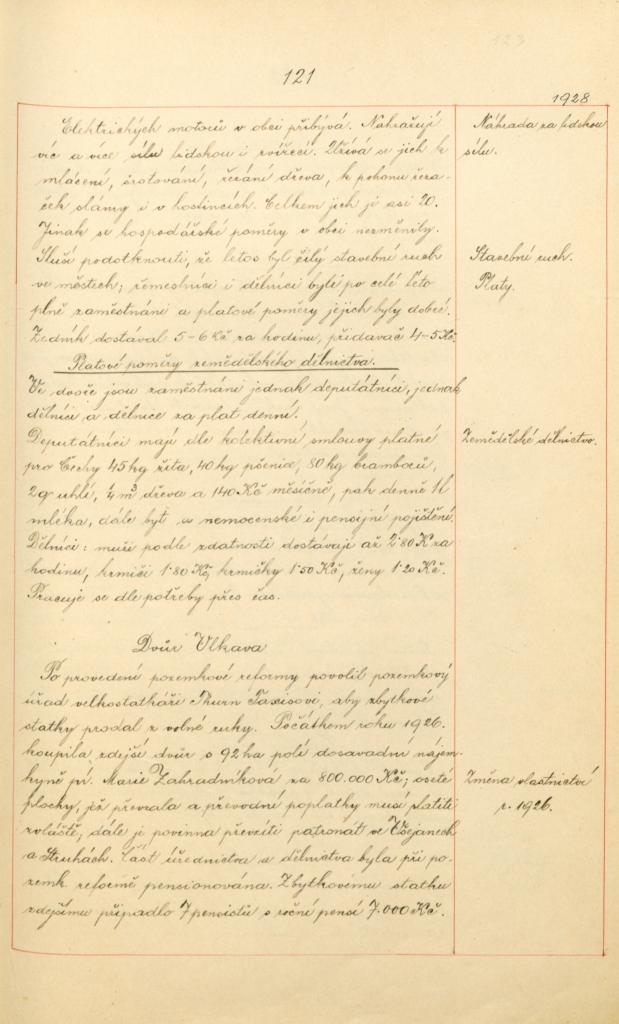 121
1928
Elektrických motorů v obci přibývá. Nahražují
víc a více sílu lidskou i zvířecí. Užívá se jich k
mlácení, šrotování, řezání dřeva, k pohonu řeza-
ček slámy i v hostincích. Celkem jich je asi 20.
Jinak se hospodářské poměry v obci nezměnily.
Sluší podotknouti, že letos byl čilý stavební ruch
ve městech; řemeslníci i dělníci byli po celé léto
plně zaměstnáni a platové poměry jejich byly dobré.
Zedník dostával 5-6 Kč za hodinu, přidavač 4-5 Kč.
Platové poměry zemědělského dělnictva.
Ve dvoře jsou zaměstnáni jednak deputátníci, jednak
dělníci a dělnice za plat denní.
Deputátníci mají dle kolektivní smlouvy platné
pro Čechy 45 kg žita, 40 kg pšenice, 80 kg bramborů,
2 q uhlí, ¼ m³ dřeva a 140 Kč měsíčně, pak denně 1 l
mléka, dále byt a nemocenské i pensijní pojištění.
Dělníci: muži podle zdatnosti dostávají až 2·80 K za
hodinu, krmiči 1·80 Kč, krmičky 1·50 Kč, ženy 1·20 Kč.
Pracuje se dle potřeby přes čas.
Dvůr Vlkava
Po provedení pozemkové reformy povolil pozemkový
úřad velkostatkáři Thurn Taxisovi, aby zbytkové
statky prodal z volné ruky. Počátkem roku 1926.
koupila zdejší dvůr s 92 ha polí dosavadní nájem-
kyně pí. Marie Zahradníková za 800.000 Kč; oseté
plochy, jež převzala a převodní poplatky musí platiti
zvláště; dále je povinna převzíti patronát ve Všejanech
a Struhách. Část úřednictva a dělnictva byla při po-
zemk. reformě pensionována. Zbytkovému statku
zdejšímu připadlo 7 pensistů s roční pensí 7.000 Kč.
Náhrada za lidskou
sílu.
Stavební ruch.
Platy.
Zemědělské dělnictvo.
Změna vlastnictví
r. 1926.